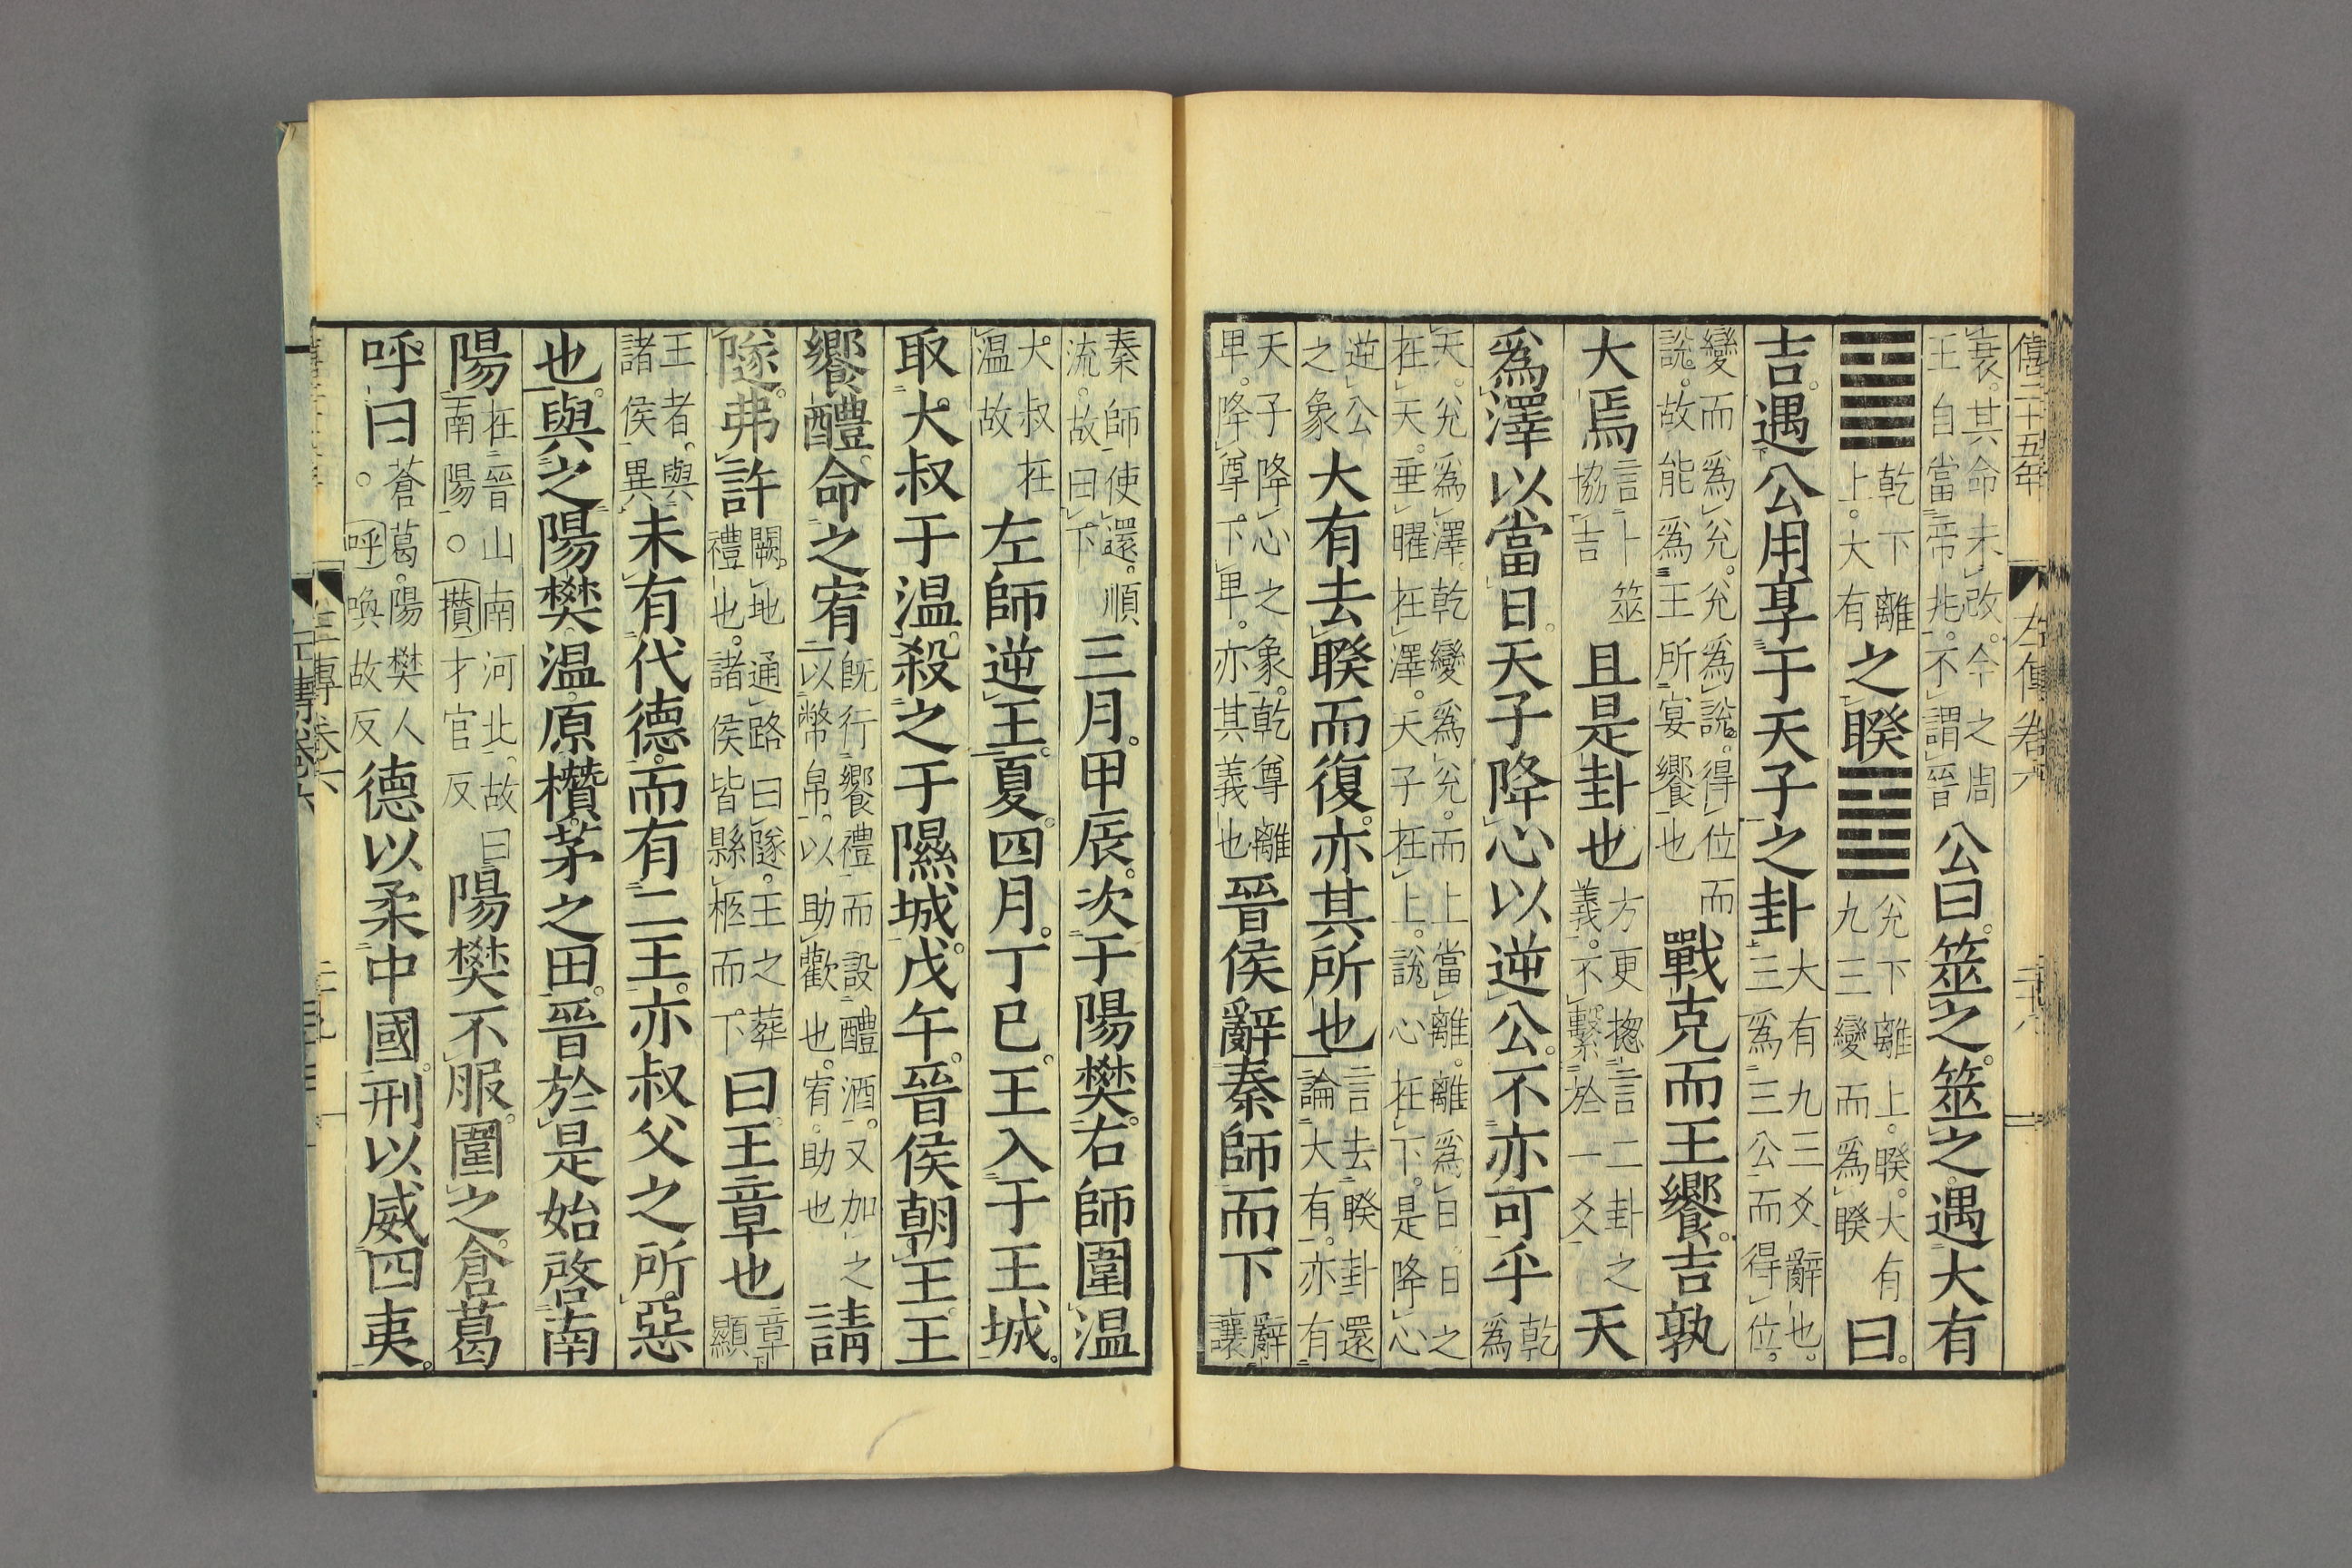 僖二十五年 左傳卷六 二十八
衰。其命未改。今之周王自當帝兆。不謂晉公曰。筮之。筮之。遇大有
䷍乾下離上。大有之睽䷥兊下離上。睽。大有九三變而爲睽曰。
吉。遇公用享于天子之卦大有九三爻辭也。三爲三公而得位。
變而爲兊。兊爲說。得位而說。故能爲王所宴饗也戰克而王饗。吉孰
大焉言卜筮協吉且是卦也方更揔言二卦之義。不繫於一爻天
爲澤以當日。天子降心以逆公。不亦可乎乾爲
天。兊爲澤。乾變爲兊。而上當離。離爲日。日之在天。垂曜在澤。天子在上。說心在下。是降心
逆公之象大有去睽而復。亦其所也言去睽卦還論大有。亦有
天子降心之象。乾尊離卑。降尊下卑。亦其義也晉侯辭秦師而下辭讓
秦師使還。順流。故曰下三月。甲辰。次于陽樊。右師圍温
大叔在温故左師逆王。夏。四月。丁巳。王入于王城。
取大叔于温。殺之于隰城。戊午。晉侯朝王。王
饗醴。命之宥既行饗禮而設醴酒。又加之以幣帛。以助歡也。宥。助也請
隧。弗許闕地通路曰隧。王之葬禮也。諸侯皆縣柩而下曰王章也章顯
王者。與諸侯異未有代德。而有二王。亦叔父之所惡
也。與之陽樊温原攢茅之田。晉於是始啓南
陽在晉山南河北。故曰南陽。○攢才官反陽樊不服。圍之。倉葛
呼曰蒼葛。陽樊人。○呼喚故反德以柔中國。刑以威四夷。
左傳卷六